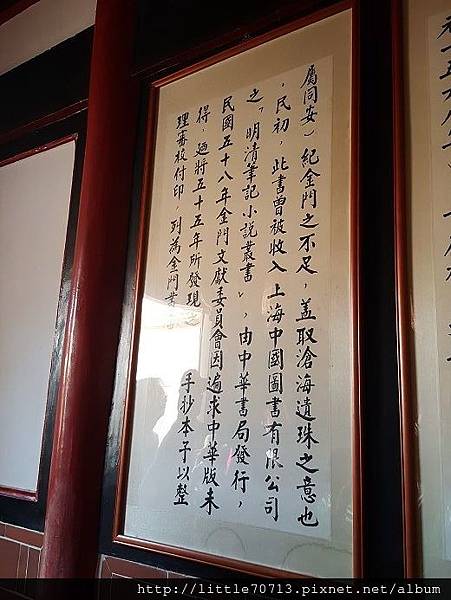 屬同安）紀金門之不足，蓋取滄海遺珠之意也
，民初，此書曾被收入上海中國圖書有限公司
之「明清筆記小說叢書」，由中華書局發行，
民國五十八年金門文獻委員會因遍求中華版未
得，廼將五十五年所發現之手抄本予以整
理審核付印，列為金門
http://little70713.pixnet.net/album